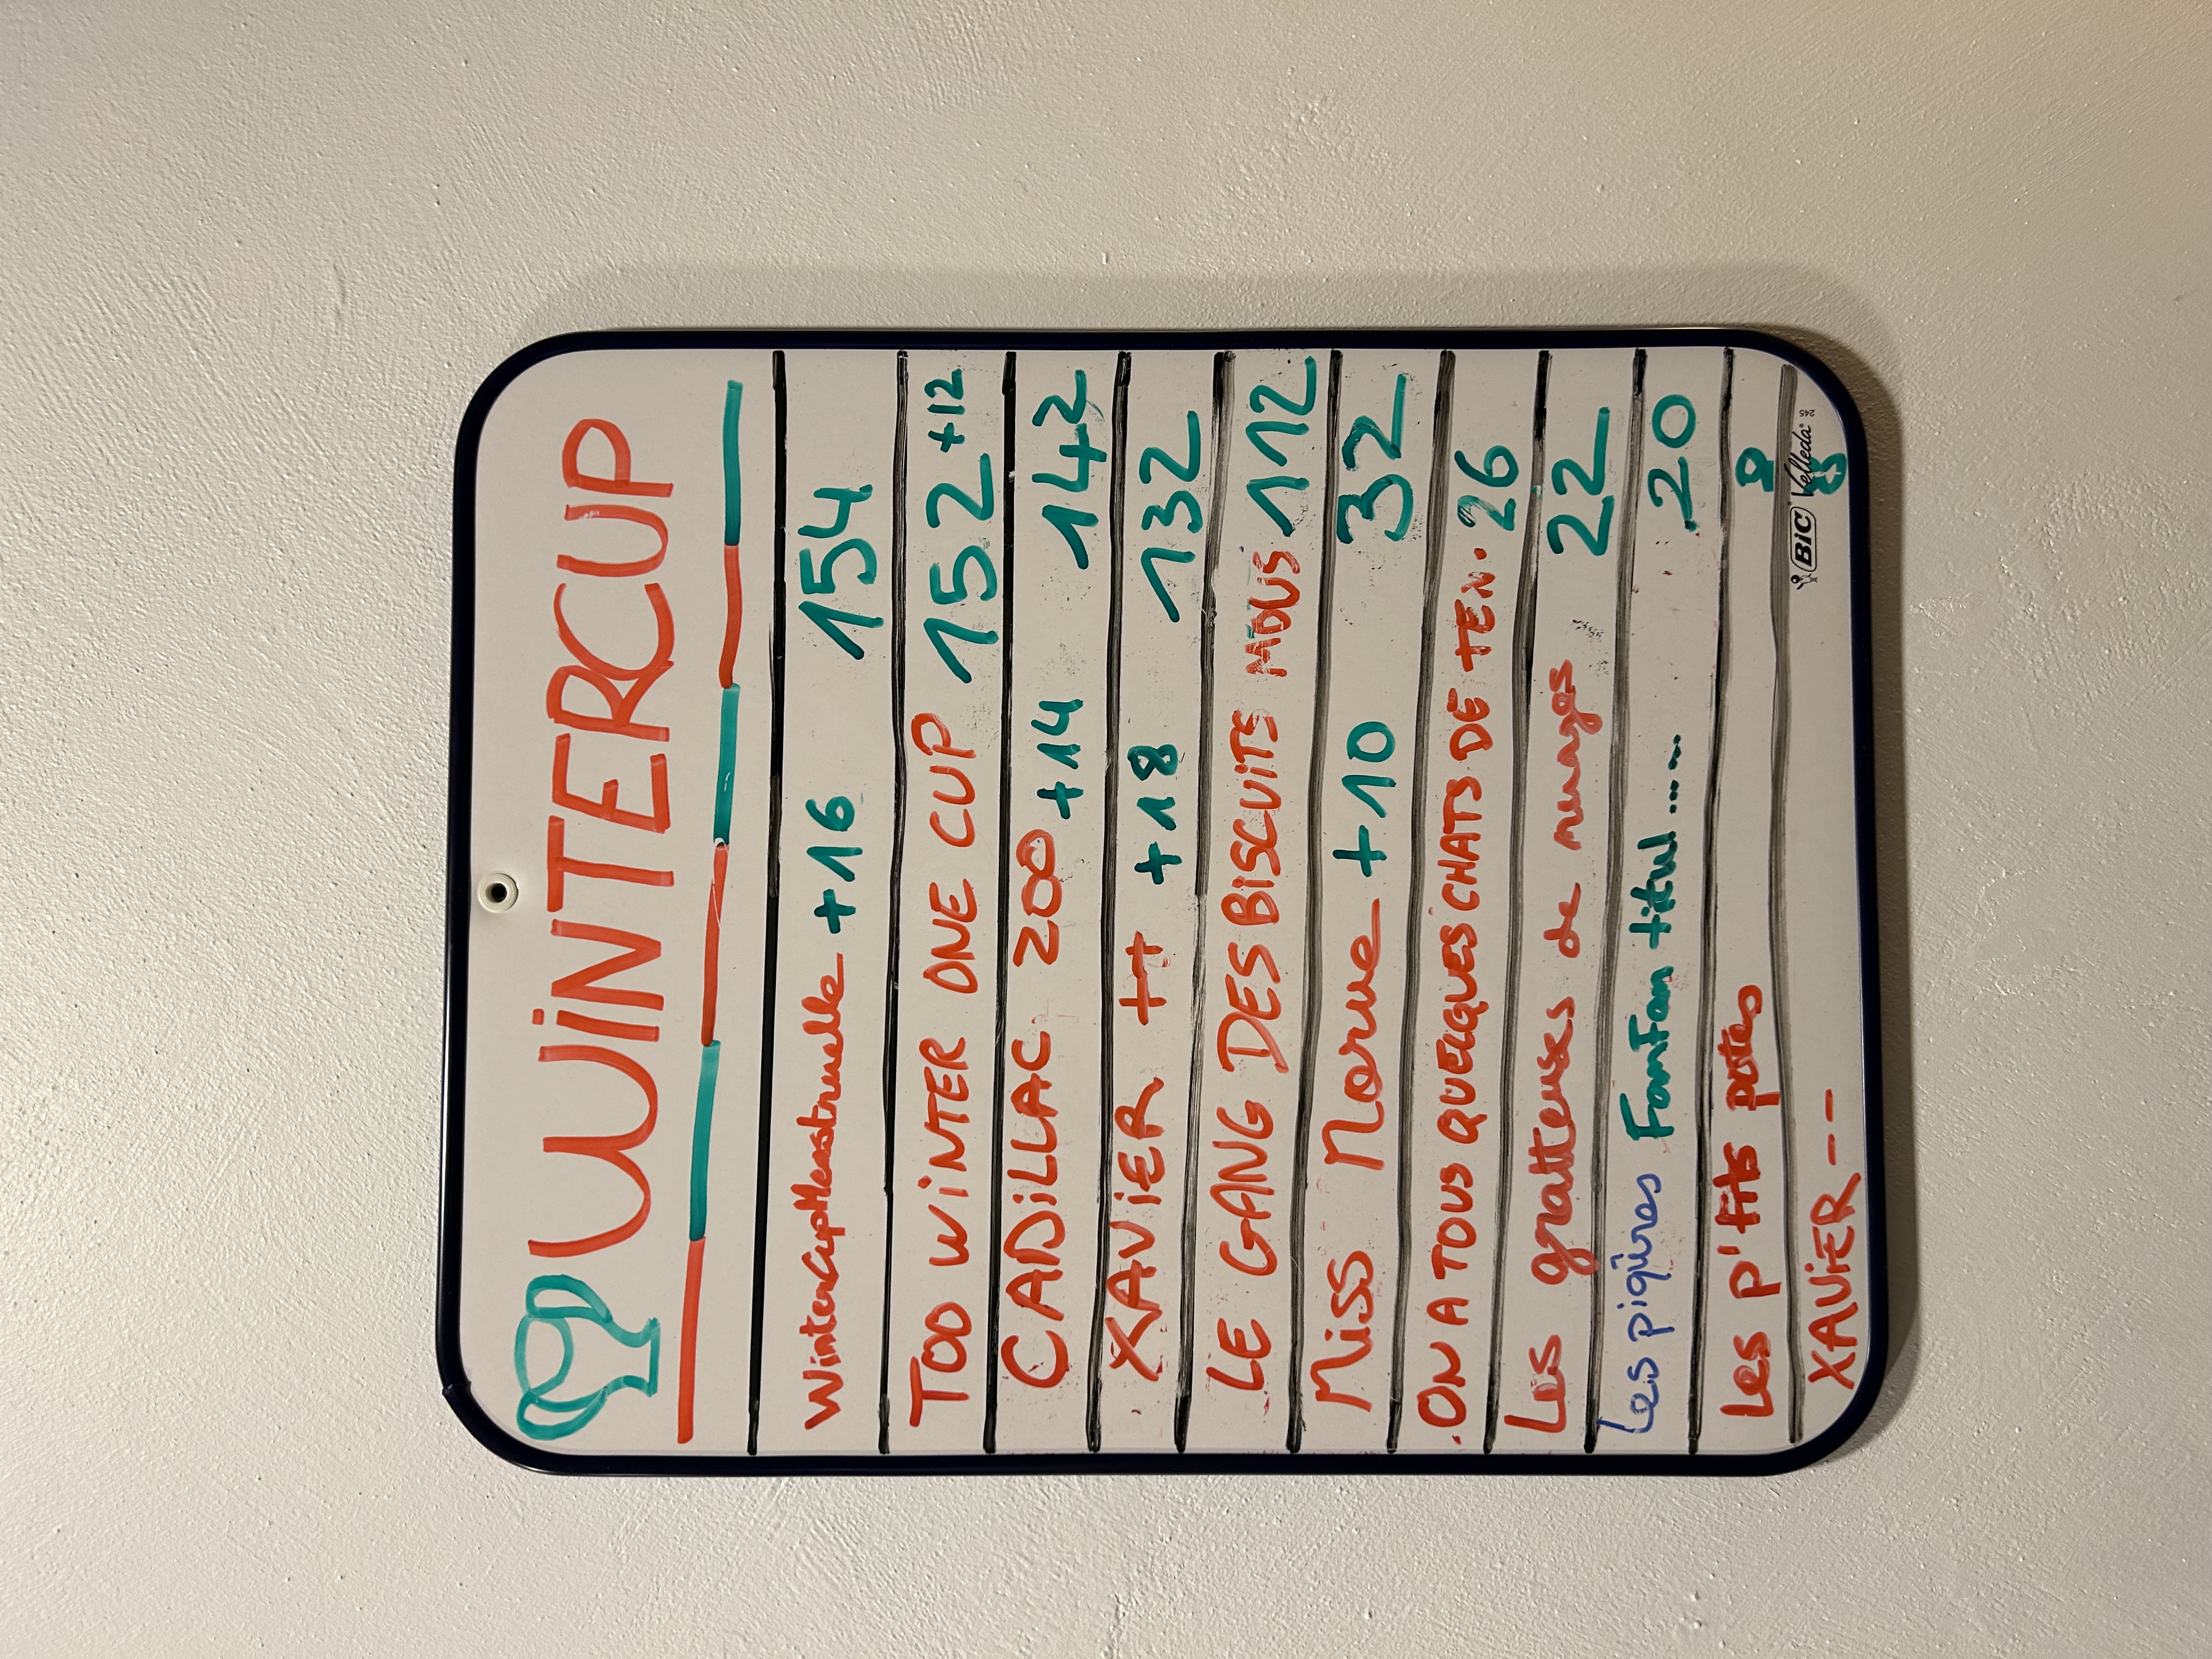 WINTERCUP
WinterCupMenstruelle +16 154
TOO WINTER ONE CUP 152 +12
CADILLAC 200 +14 142
XAVIER ++ +18 132
LE GANG DES BISCUITS MOUS 112
Miss Morue +10 32
ON A TOUS QUELQUES CHATS DE TEN. 26
Les gratteuses de nuages 22
Les piqûres Fantan titul..... 20
Les p'tits potes 8
XAVIER -- 8
BIC Velleda 245